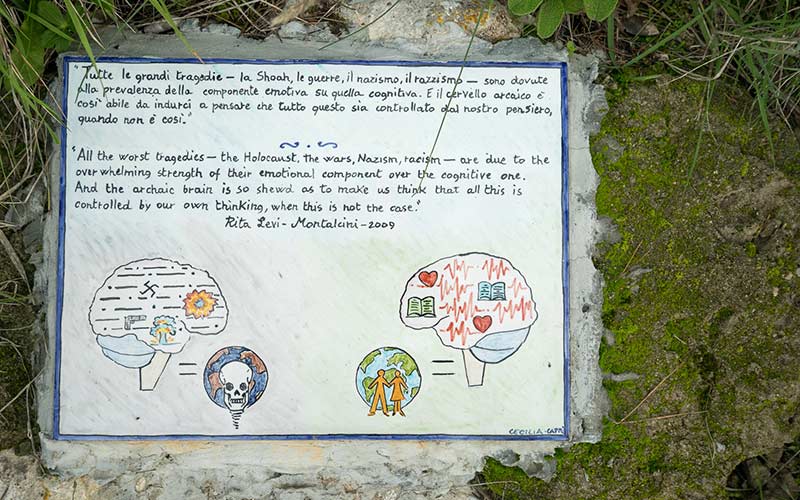 "Tutte le grandi tragedie — la Shoah, le guerre, il nazismo, il razzismo — sono dovute
alla prevalenza della componente emotiva su quella cognitiva. E il cervello arcaico è
così abile da indurci a pensare che tutto questo sia controllato dal nostro pensiero,
quando non è così."
"All the worst tragedies — the Holocaust, the wars, Nazism, racism — are due to the
overwhelming strength of their emotional component over the cognitive one.
And the archaic brain is so shewd as to make us think that all this is
controlled by our own thinking, when this is not the case."
Rita Levi-Montalcini-2009
=
=
CECILIA